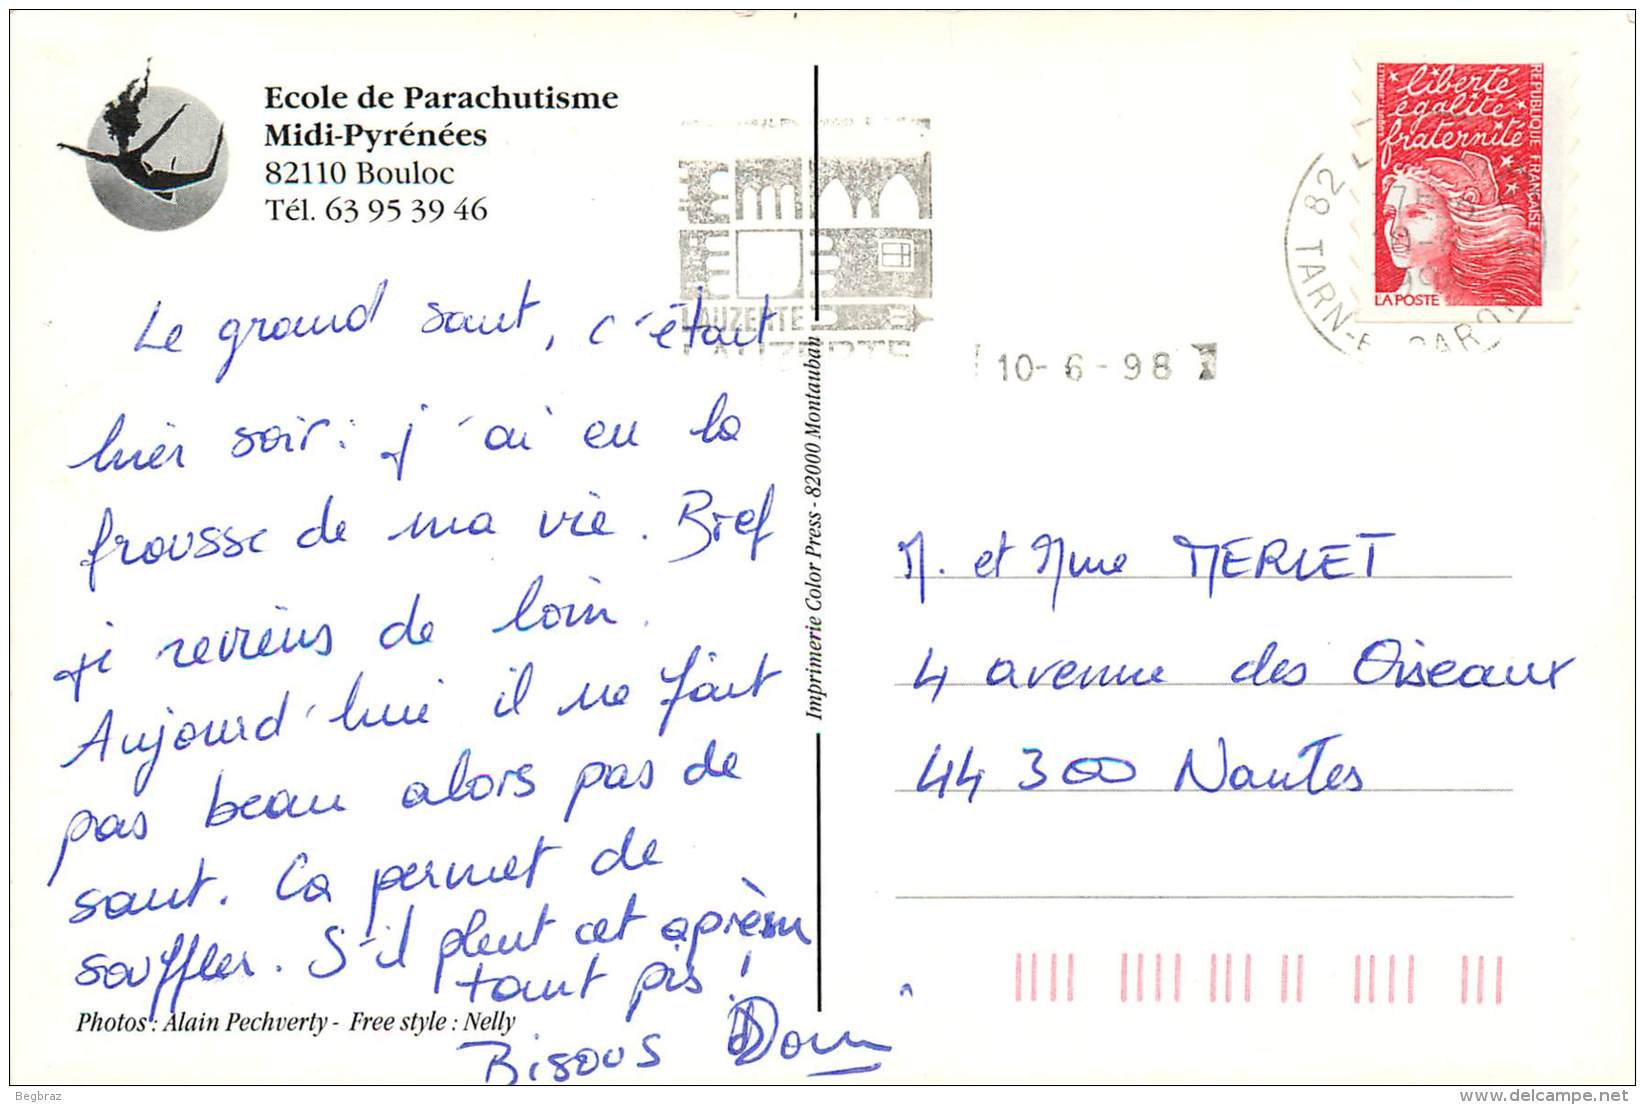 Ecole de Parachutisme
Midi-Pyrénées
82110 Bouloc
Tél. 63 95 39 46
Le grand saut, c'était
hier soir : j'ai eu la
frousse de ma vie. Bref
je reviens de loin.
Aujourd'hui il ne fait
pas beau alors pas de
saut. Ca permet de
souffler. S'il pleut cet aprèm
tant pis !
Bisous Dom
Photos : Alain Pechverty - Free style : Nelly
Imprimerie Color Press - 82000 Montauban
LAUZERTE
LAUZERTE
10-6-98
82
TARN-E GARO
liberté
égalité
fraternité
REPUBLIQUE FRANÇAISE
LA POSTE
M. et Mme MERLET
4 avenue des Oiseaux
44 300 Nantes
Begbraz
http://www.delcampe.net